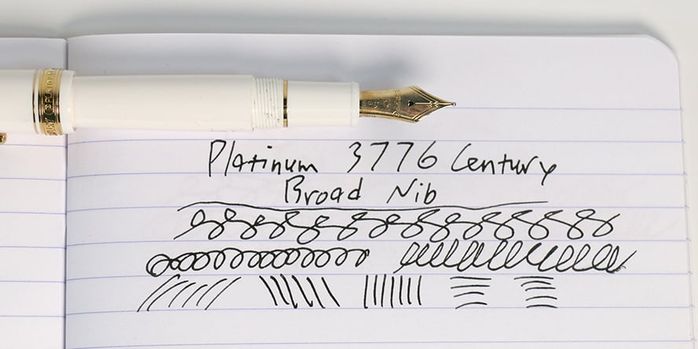 Platinum 3776 Century
Broad Nib